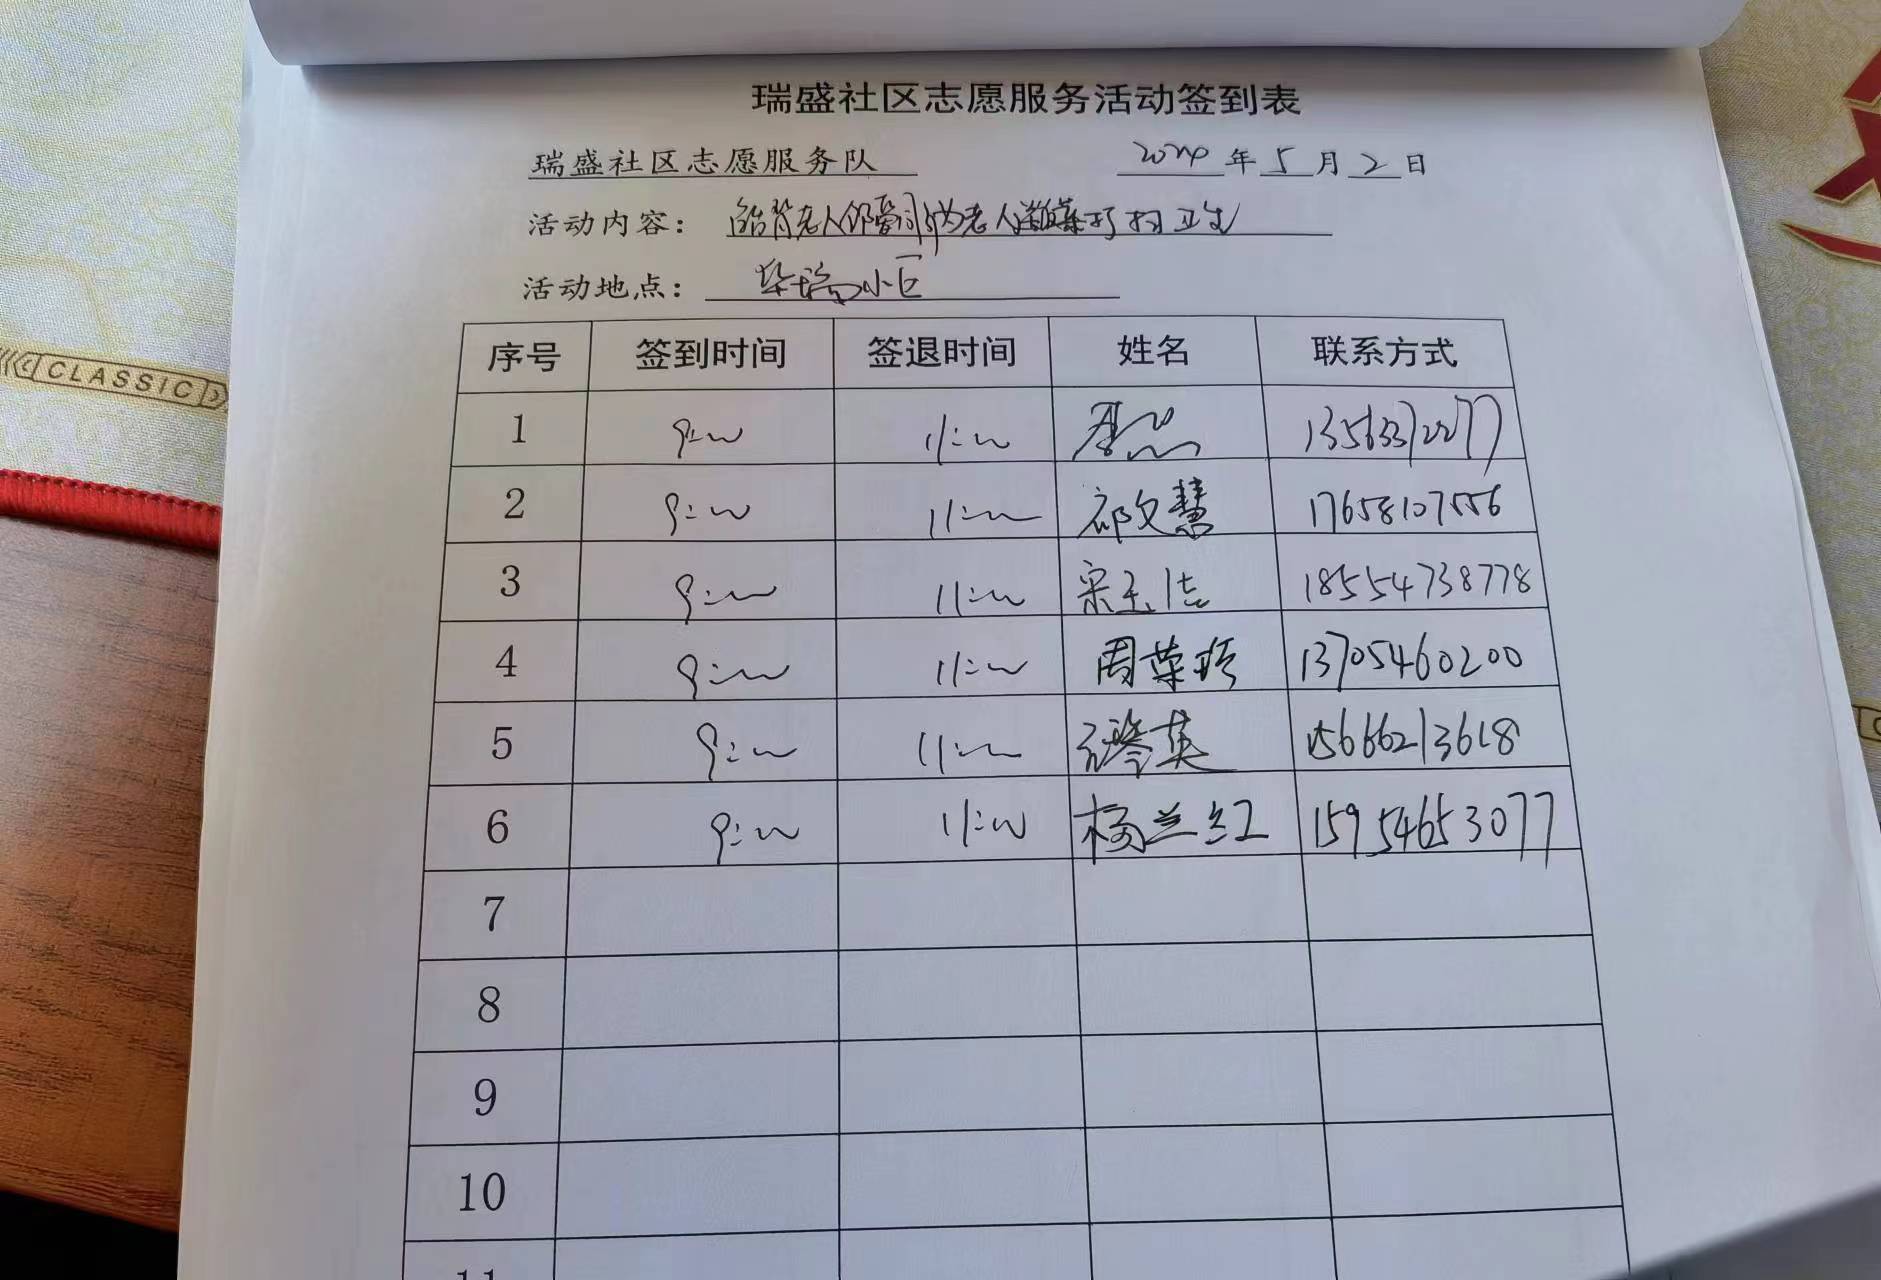 瑞盛社区志愿服务活动签到表
瑞盛社区志愿服务队 2024年5月2日
活动内容： 老人 老人 打扫卫生
活动地点： 华瑞小区
序号 签到时间 签退时间 姓名 联系方式
1 9:00 11:00
2 9:00 11:00 祁文慧 17658107556
3 9:00 11:00 宋玉洁 18554738778
4 9:00 11:00 周荣珍 13705460200
5 9:00 11:00 15666213618
6 9:00 11:00 杨兰红 15954653077
7
8
9
10
11
CLASSIC